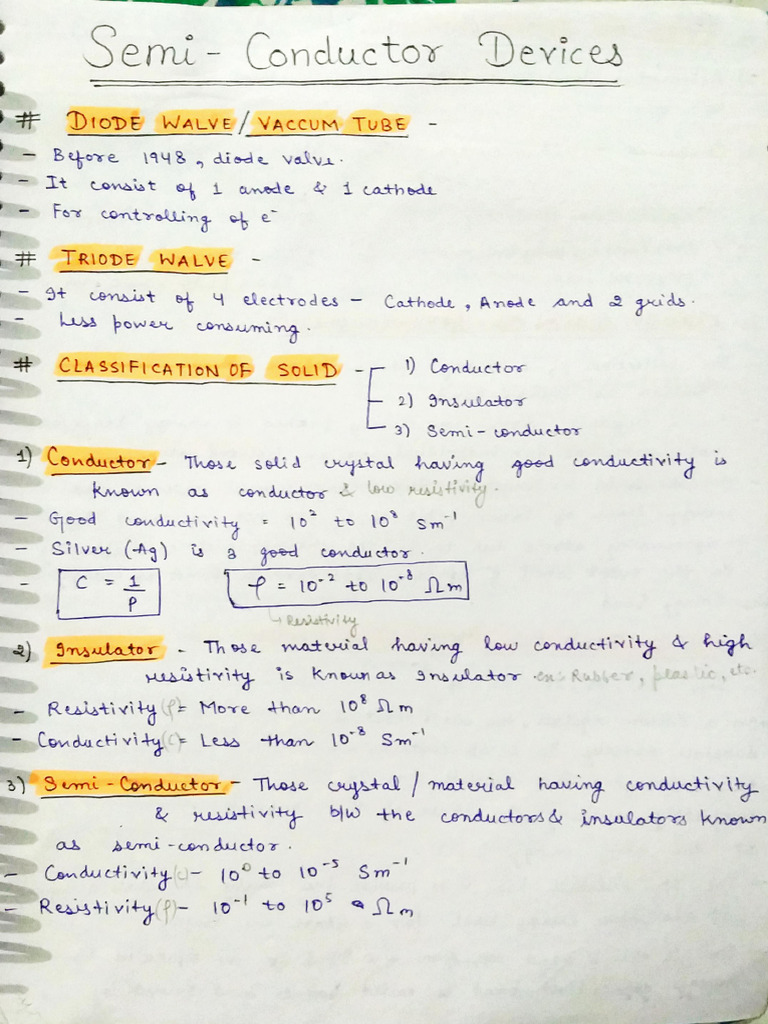 Semi-Conductor Devices
# DIODE WALVE/VACCUM TUBE -
- Before 1948, diode valve.
- It consist of 1 anode & 1 cathode
- For controlling of e⁻
# TRIODE WALVE -
- It consist of 4 electrodes - Cathode, Anode and 2 grids.
- Less power consuming.
# CLASSIFICATION OF SOLID - 1) Conductor
2) Insulator
3) Semi-conductor
1) Conductor - Those solid crystal having good conductivity is
known as conductor & low resistivity.
- Good conductivity = 10² to 10⁸ Sm⁻¹
- Silver (Ag) is a good conductor.
- C = 1/ρ ρ = 10⁻² to 10⁻⁸ Ωm
↳ Resistivity
2) Insulator - Those material having low conductivity & high
resistivity is known as Insulator. ex: Rubber, plastic, etc.
- Resistivity(ρ)= More than 10⁸ Ωm
- Conductivity(c)= Less than 10⁻⁸ Sm⁻¹
3) Semi-Conductor - Those crystal / material having conductivity
& resistivity b/w the conductors & insulators known
as semi-conductor.
- Conductivity(c)- 10⁰ to 10⁻⁵ Sm⁻¹
- Resistivity(ρ)- 10⁻¹ to 10⁵ Ωm